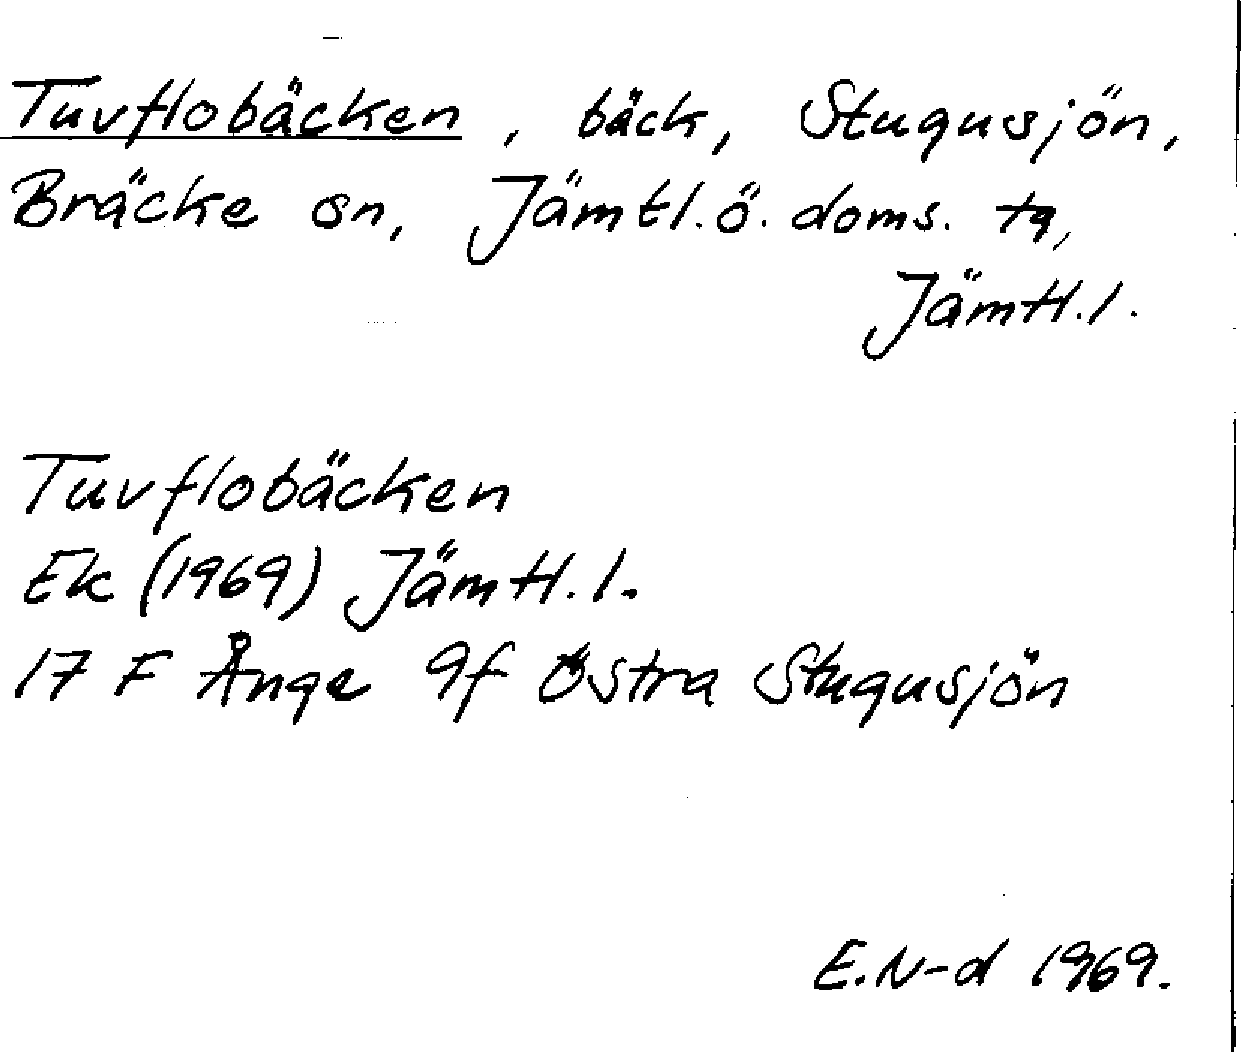 Tuvflobäcken, bäck, Stugusjön,
Bräcke sn, Jämtl. ö. doms. tg,
Jämtl. l.
Tuvflobäcken
Ek (1969) Jämtl. l.
17 F Ånge 9f Östra Stugusjön
E. N-d 1969.